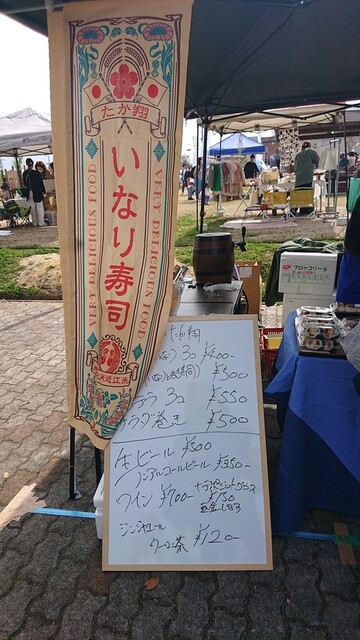 たか翔
いなり寿司
VERY DELICIOUS FOOD
VERY DELICIOUS FOOD
近江米
ブロッコリー
たか翔
3コ ¥400-
¥300
3コ ¥550
サラダ巻き ¥500
生ビール ¥500
ノンアルコールビール ¥350-
ワイン ¥700-
¥150
ジンジャエール
ウーロン茶 ¥120-